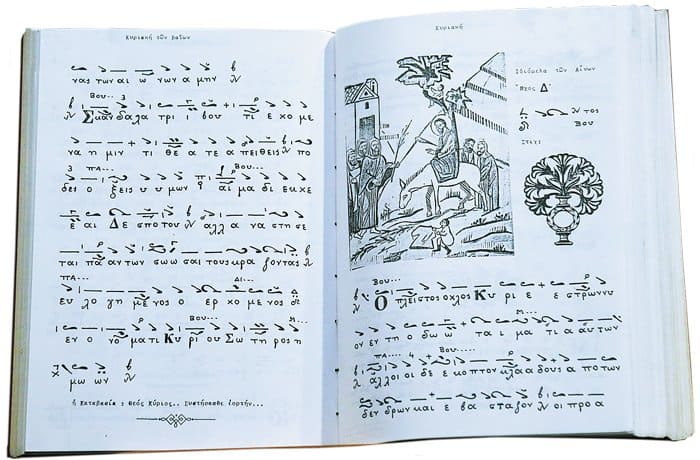 Κυριακή τῶν Βαΐων
νας των αι ω νων α μην
Σκάν δαλα τρι ι βου τι ε χο με
να η μιν τι θε α τε α πειθεις πο
δες ο ξεις υ υ μων αι μα δι εκ χε
ε αι Δε σπο του αλλ α να στη σε
ται πα αν των σω ω σαι τους κρα ζοντας
ευ λο γη μενος ο ερ χο με νος
εν ο νο μα τι Κυ ρι ου Σω τη ρος η
μω ων
ἡ Καταβασία : Θεός Κύριος.. Συστήσασθε ἑορτήν...
Κυριακή
Ἰδιόμελα τῶν Αἴνων
Ἦχος Δ'
τος
Βου
Στιχ:
Ο πλείστος οχλος Κυ ρι ε ε στρωννυ
ον εν τη ο δω ω τα ι μα τι α αυ των
αλλοι οι δε ε κο πτον κλα α δους α πο των
δεν δρων και ε βα σταζον οι προ α